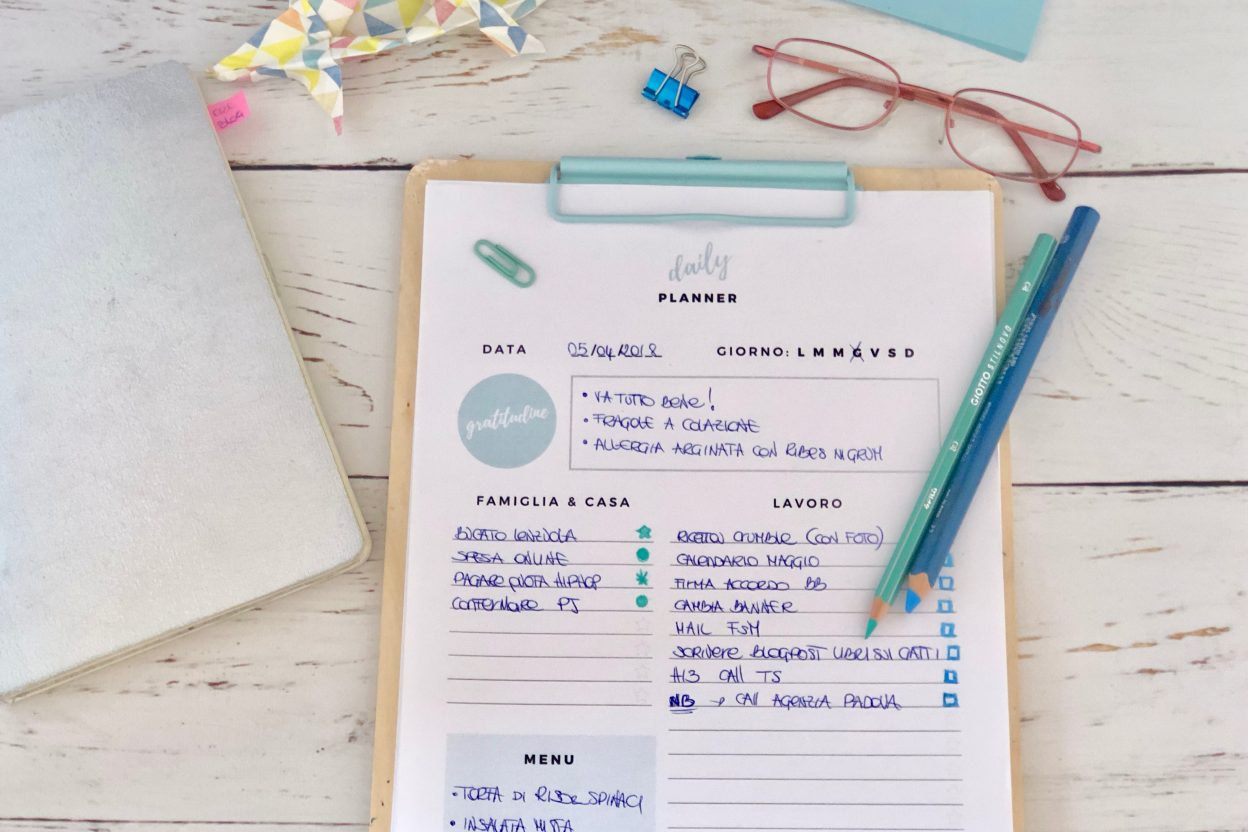 BLOG
daily
PLANNER
DATA 05/04/2018 GIORNO: L M M G V S D
gratitudine
• VA TUTTO BENE!
• FRAGOLE A COLAZIONE
• ALLERGIA ARGINATA CON RIBES NIGRUM
FAMIGLIA & CASA
BUCATO LENZUOLA
SPESA ONLINE
PAGARE QUOTA HIPHOP
CONFERMARE PJ
LAVORO
CRUMBLE (CON FOTO)
CALENDARIO MAGGIO
FIRMA ACCORDO BB
CAMBIA BANNER
MAIL FSM
SCRIVERE BLOGPOST LIBRI SUI GATTI
H13 CALL TS
NB → CALL AGENZIA PADOVA
MENU
• TORTA DI RISO E SPINACI
• INSALATA MISTA
GIOTTO STILNOVO